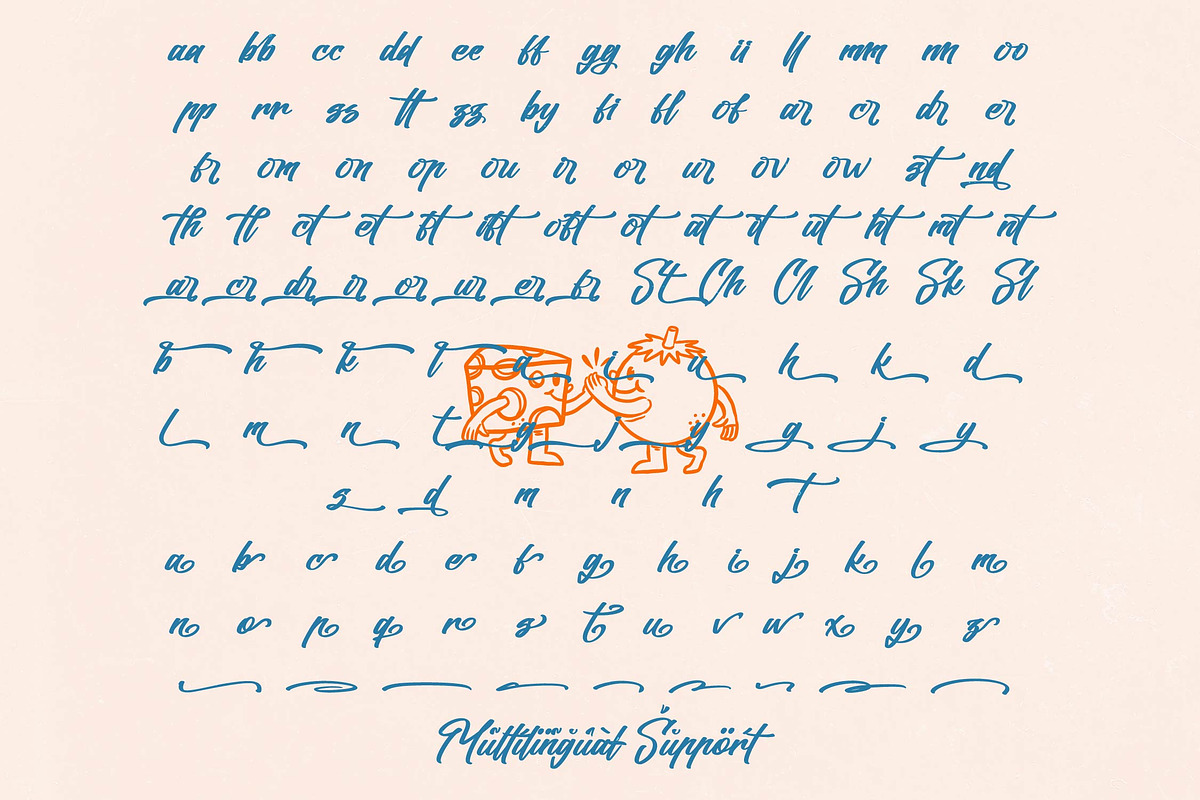 aa bb cc dd ee ff gg gh ii ll mm nn oo
pp rr ss tt zz by fi fl of ar cr dr er
fr om on op ou ir or ur ov ow st nd
th tl ct et ft ift oft ot at it ut ht mt nt
ar cr dr ir or ur er fr St Ch Cl Sh Sk Sl
b h k l a i u h k d
l m n t g j y g j y
s d m n h T
a b c d e f g h i j k l m
n o p q r s t u v w x y z
Mũltĩlïñğûàl Šŭppört